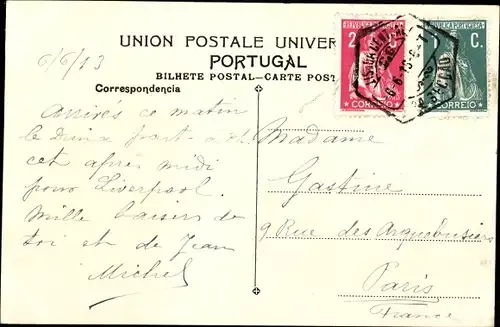 6/6/13
UNION POSTALE UNIVER
PORTUGAL
BILHETE POSTAL-CARTE POST
Correspondencia
REPUBLICA PORTUGUESA
2 C.
CORREIO
CORREIO
Arrivés ce matin
le part
cet après midi
pour Liverpool.
Mille baisers de
toi et de Jean
Michel
Madame
Gastine
9 Rue des Arquebusiers
Paris
France